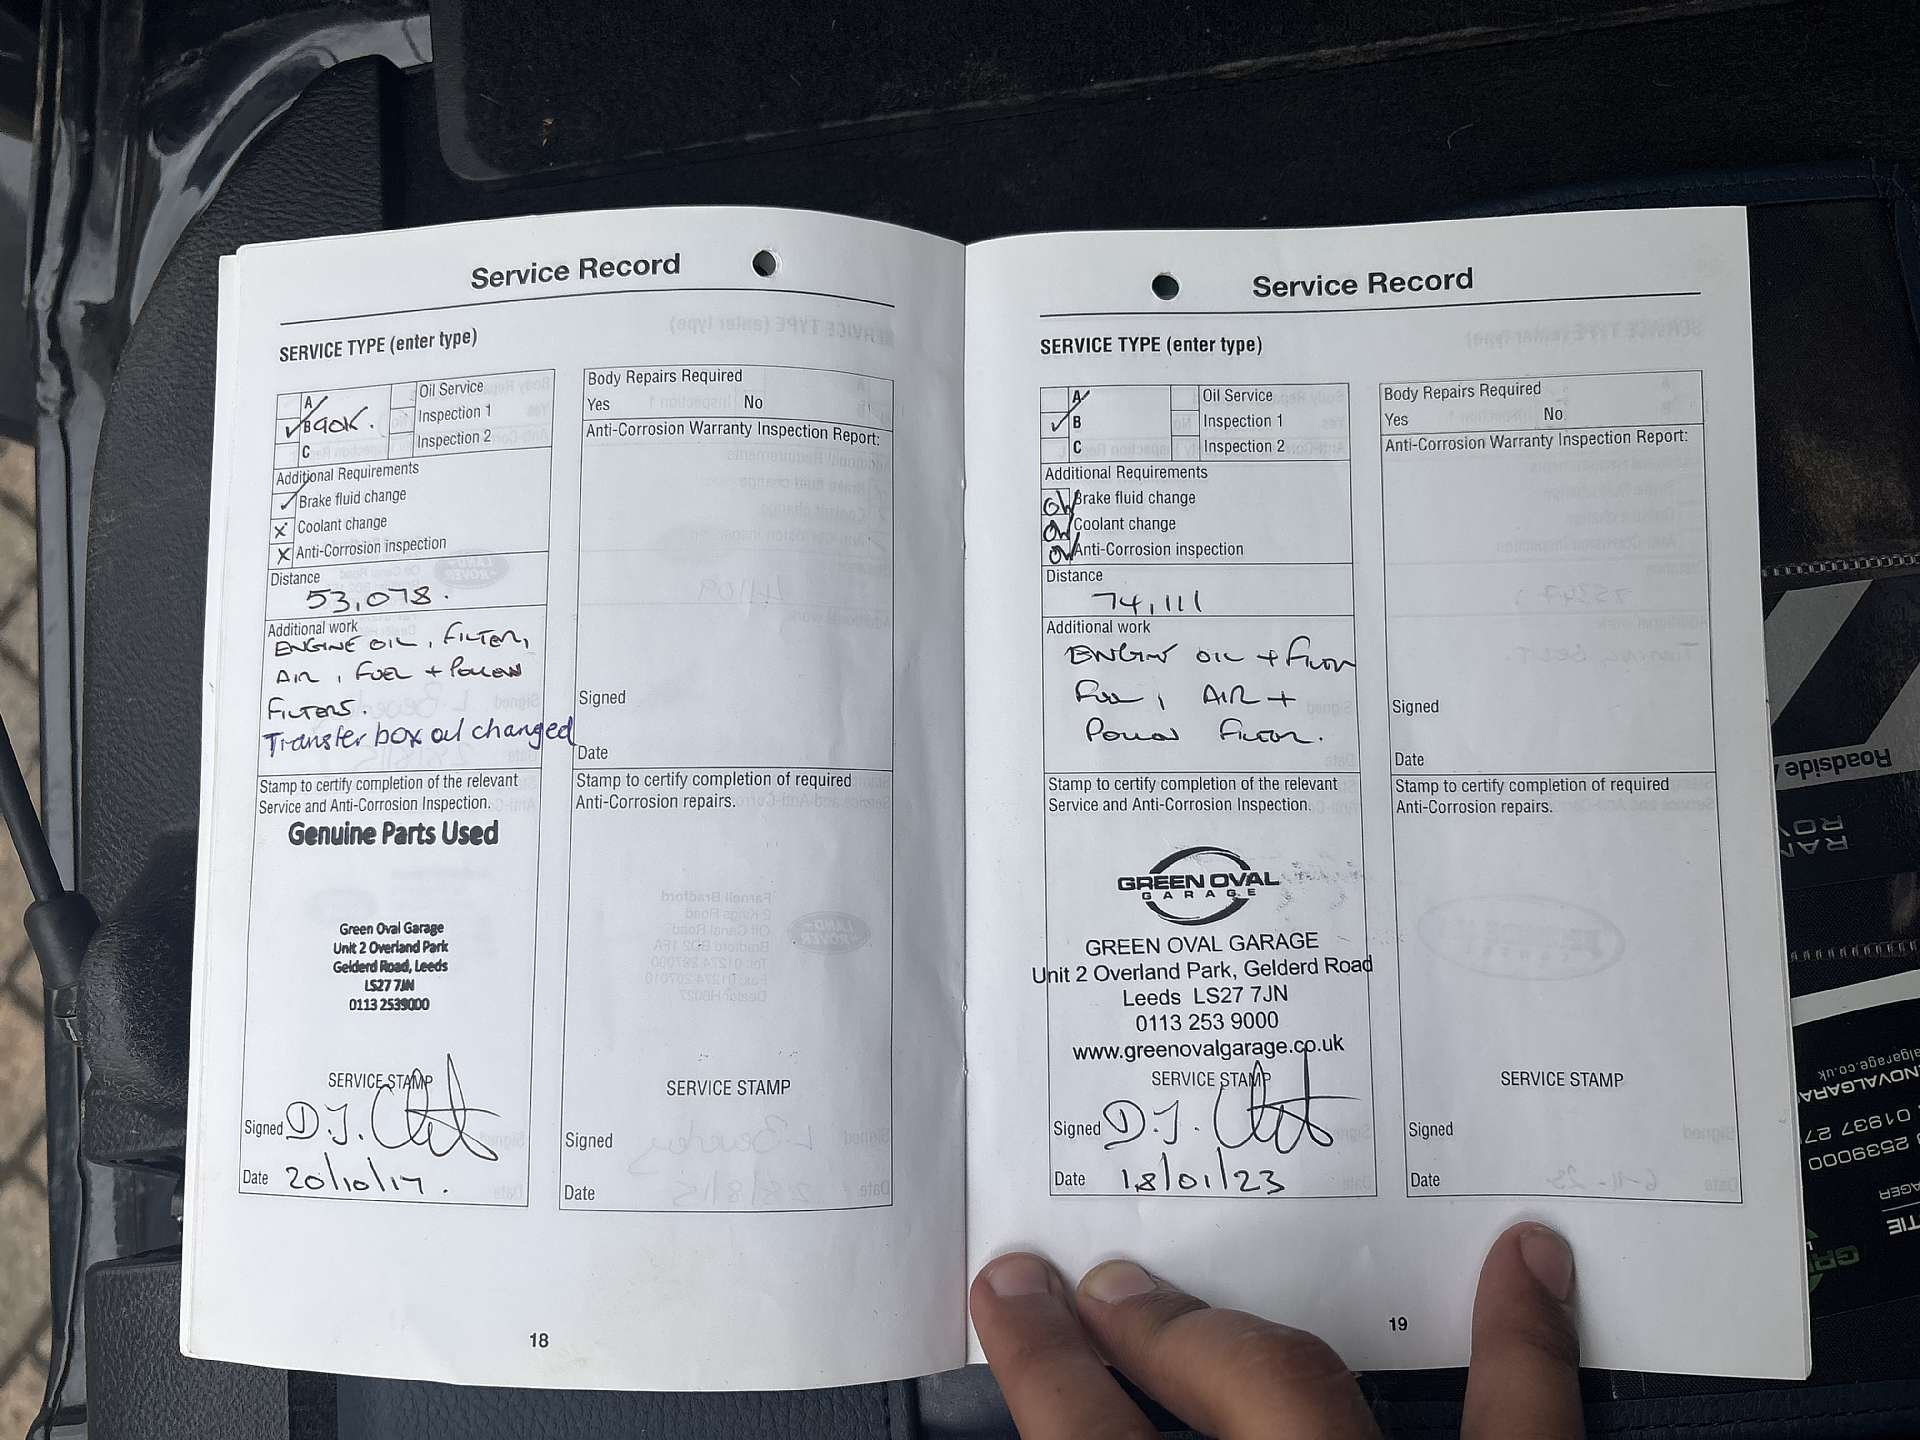 Service Record
SERVICE TYPE (enter type)
A
B 90K.
C
Oil Service
Inspection 1
Inspection 2
Additional Requirements
Brake fluid change
Coolant change
Anti-Corrosion inspection
Distance
53,078.
Additional work
ENGINE OIL, FILTER,
AIR, FUEL + POLLEN
FILTERS.
Transfer box oil changed
Stamp to certify completion of the relevant
Service and Anti-Corrosion Inspection.
Genuine Parts Used
Green Oval Garage
Unit 2 Overland Park
Gelderd Road, Leeds
LS27 7JN
0113 2539000
SERVICE STAMP
Signed D.J.
Date 20/10/17.
Body Repairs Required
Yes No
Anti-Corrosion Warranty Inspection Report:
Signed
Date
Stamp to certify completion of required
Anti-Corrosion repairs.
SERVICE STAMP
Signed
Date
18
Service Record
SERVICE TYPE (enter type)
A
B
C
Oil Service
Inspection 1
Inspection 2
Additional Requirements
Brake fluid change
Coolant change
Anti-Corrosion inspection
Distance
74,111
Additional work
ENGINE OIL + FILTER
FUEL, AIR +
POLLEN FILTER.
Stamp to certify completion of the relevant
Service and Anti-Corrosion Inspection.
GREEN OVAL
GARAGE
GREEN OVAL GARAGE
Unit 2 Overland Park, Gelderd Road
Leeds LS27 7JN
0113 253 9000
www.greenovalgarage.co.uk
SERVICE STAMP
Signed D.J.
Date 18/01/23
Body Repairs Required
Yes No
Anti-Corrosion Warranty Inspection Report:
Signed
Date
Stamp to certify completion of required
Anti-Corrosion repairs.
SERVICE STAMP
Signed
Date
19
Roadside